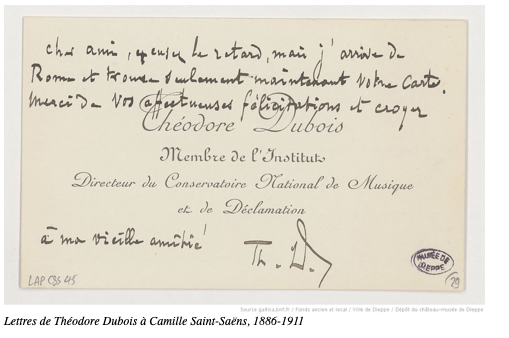 cher ami, excusez le retard, mais j'arrive de
Rome et trouve seulement maintenant votre carte.
Merci de vos affectueuses félicitations et croyez
Théodore Dubois
Membre de l'Institut
Directeur du Conservatoire National de Musique
et de Déclamation
à ma vieille amitié!
Th. D.
MUSÉE DE
DIEPPE
LAP C35 45
29
Source gallica.bnf.fr / Fonds ancien et local / Ville de Dieppe / Dépôt du château-musée de Dieppe
Lettres de Théodore Dubois à Camille Saint-Saëns, 1886-1911